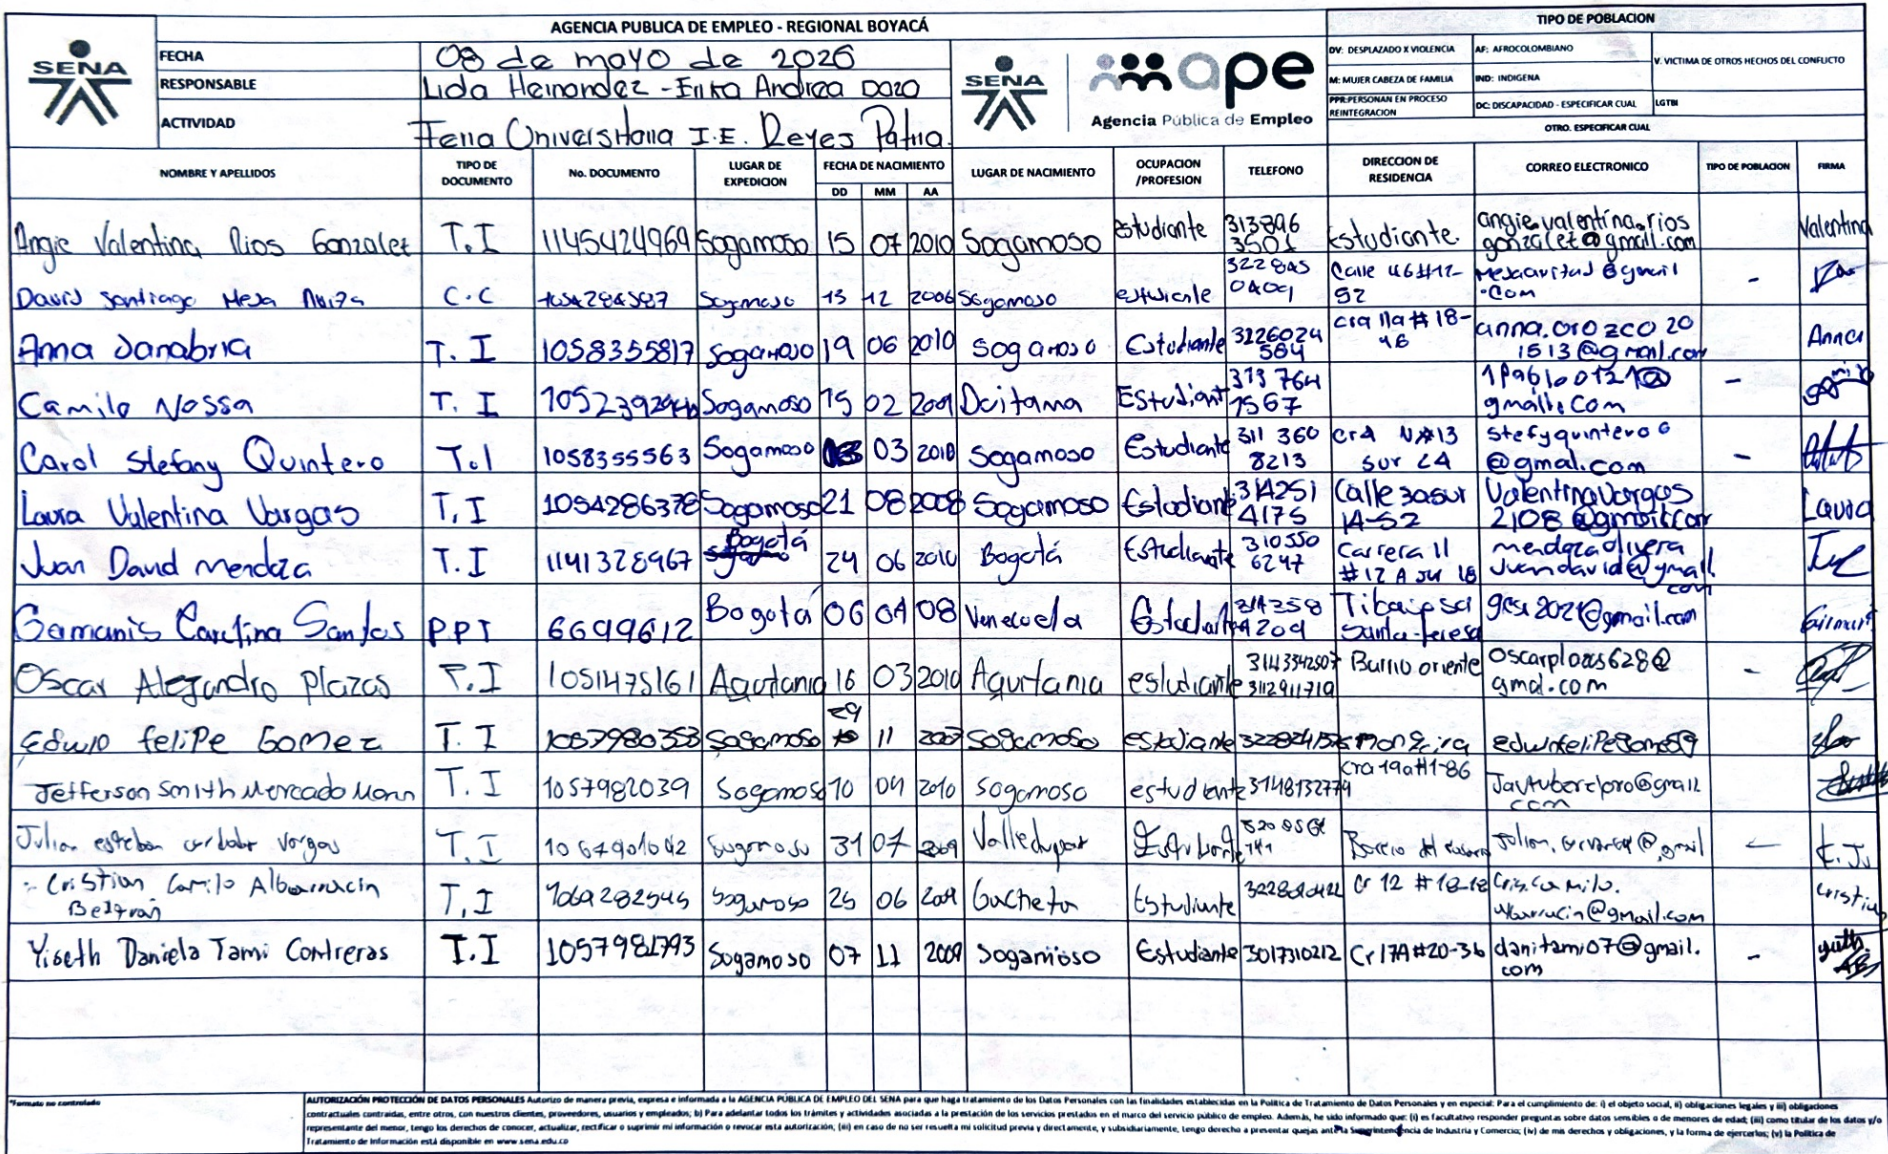 AGENCIA PUBLICA DE EMPLEO - REGIONAL BOYACÁ
TIPO DE POBLACION
SENA
FECHA 08 de mayo de 2026
RESPONSABLE Lida Hernandez - Erika Andrea Dozo
ACTIVIDAD Feria Universitaria I.E. Reyes Patria.
SENA
ape
Agencia Pública de Empleo
DV: DESPLAZADO X VIOLENCIA AF: AFROCOLOMBIANO V. VICTIMA DE OTROS HECHOS DEL CONFLICTO
M: MUJER CABEZA DE FAMILIA IND: INDIGENA
PPR:PERSONAN EN PROCESO REINTEGRACION DC: DISCAPACIDAD - ESPECIFICAR CUAL LGTBI
OTRO. ESPECIFICAR CUAL
NOMBRE Y APELLIDOS TIPO DE DOCUMENTO No. DOCUMENTO LUGAR DE EXPEDICION FECHA DE NACIMIENTO DD MM AA LUGAR DE NACIMIENTO OCUPACION /PROFESION TELEFONO DIRECCION DE RESIDENCIA CORREO ELECTRONICO TIPO DE POBLACION FIRMA
Angie Valentina Rios Gonzalez T.I 1145424969 Sogamoso 15 07 2010 Sogamoso Estudiante 313896 3501 Estudiante. angie.valentina.rios gonzalez@gmail.com Valentina
David Santiago Mesa C.C Sogamoso 13 12 2006 Sogamoso estudiante 322845 0409 Calle 46#12-52 -
Anna Sanabria T. I 1058355817 Sogamoso 19 06 2010 Sogamoso Estudiante 3226024 584 cra 11a # 18-4B anna.orozco 20 1513@gmail.com Anna
Camilo Nossa T. I Sogamoso 15 02 2009 Duitama Estudiant 313 764 1567 gmail.com -
Carol Stefany Quintero T.I 1058355563 Sogamoso 03 2010 Sogamoso Estudiante 311 360 8213 cra N#13 sur 24 stefyquintero6 @gmal.com -
Laura Valentina Vargas T.I 1054286378 Sogamoso 21 08 2008 Sogamoso Estudiante 314251 4175 Calle 3asur 14-52 Valentinavargas 2108@gmail.com Laura
Juan David Mendoza T.I 1141328967 Bogotá 24 06 2010 Bogotá Estudiante 310550 6247 Carrera 11 #12 A sur 18 mendozaolivera Juandavid@gmail.com
Carolina Santos P.P.T 6699612 Bogotá 06 04 08 Venezuela 314258 4209 Santa teresa gcsr2021@gmail.com
Oscar Alejandro Plazas T.I 1051475161 Aquitania 16 03 2010 Aquitania estudiante 3143542507 3112911719 Barrio oriente oscarplozas628@ gmal.com -
Edwin felipe Gomez T. I 1057980353 Sogamoso 29 11 Sogamoso estudiante
Jefferson Smith Mercado T.I 1057982039 Sogamoso 10 04 2010 Sogamoso estudiante 3148132774 cra 19a#1-86
Julian esteban cordoba Vargas T.I Sogamoso 31 07 2009 Valledupar Estudiante Barrio del
Cristian Camilo Albarracin Beltran T.I Sogamoso 25 06 2009 Gacheta Estudiante Cr 12 #18-18 Cris.camilo. albarracin@gmail.com cristian
Yiseth Daniela Tami Contreras T.I 1057981793 Sogamoso 07 11 2009 Sogamoso Estudiante 3017310212 Cr17A#20-36 danitami07@gmail.com -
*Formato no controlado
AUTORIZACIÓN PROTECCIÓN DE DATOS PERSONALES Autorizo de manera previa, expresa e informada a la AGENCIA PÚBLICA DE EMPLEO DEL SENA para que haga tratamiento de los Datos Personales con las finalidades establecidas en la Política de Tratamiento de Datos Personales y en especial: Para el cumplimiento de: i) el objeto social, ii) obligaciones legales y iii) obligaciones
contractuales contraidas, entre otros, con nuestros clientes, proveedores, usuarios y empleados; b) Para adelantar todos los trámites y actividades asociadas a la prestación de los servicios prestados en el marco del servicio público de empleo. Además, he sido informado que: (i) es facultativo responder preguntas sobre datos sensibles o de menores de edad; (ii) como titular de los datos y/o
representante del menor, tengo los derechos de conocer, actualizar, rectificar o suprimir mi información o revocar esta autorización; (iii) en caso de no ser resuelta mi solicitud previa y directamente, y subsidiariamente, tengo derecho a presentar quejas ante la Superintendencia de Industria y Comercio; (iv) de mis derechos y obligaciones, y la forma de ejercerlos; (v) la Política de
Tratamiento de Información está disponible en www.sena.edu.co